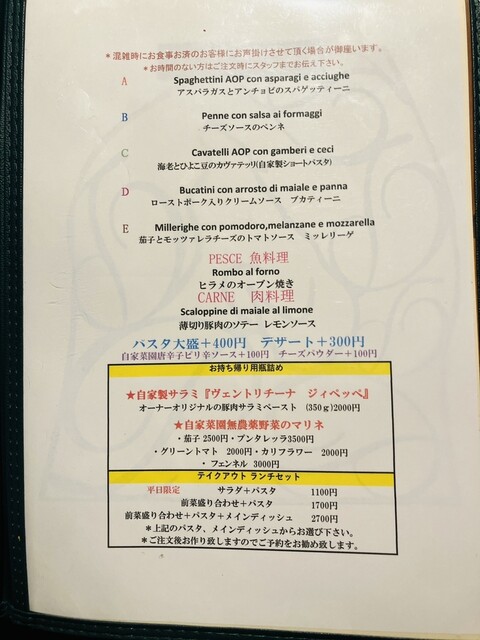 ＊混雑時にお食事お済のお客様にお声掛けさせて頂く場合が御座います。
＊お時間のない方はご注文時にスタッフまでお伝え下さい。
A Spaghettini AOP con asparagi e acciughe
アスパラガスとアンチョビのスパゲッティーニ
B Penne con salsa ai formaggi
チーズソースのペンネ
C Cavatelli AOP con gamberi e ceci
海老とひよこ豆のカヴァテッリ(自家製ショートパスタ)
D Bucatini con arrosto di maiale e panna
ローストポーク入りクリームソース ブカティーニ
E Millerighe con pomodoro,melanzane e mozzarella
茄子とモッツァレラチーズのトマトソース ミッレリーゲ
PESCE 魚料理
Rombo al forno
ヒラメのオーブン焼き
CARNE 肉料理
Scaloppine di maiale al limone
薄切り豚肉のソテー レモンソース
パスタ大盛＋400円 デザート＋300円
自家菜園唐辛子ピリ辛ソース＋100円 チーズパウダー＋100円
お持ち帰り用瓶詰め
★自家製サラミ『ヴェントリチーナ ジィペッペ』
オーナーオリジナルの豚肉サラミペースト (350ｇ)2000円
★自家菜園無農薬野菜のマリネ
・茄子 2500円・プンタレッラ3500円
・グリーントマト 2000円・カリフラワー 2000円
・フェンネル 3000円
テイクアウト ランチセット
平日限定 サラダ＋パスタ 1100円
前菜盛り合わせ＋パスタ 1700円
前菜盛り合わせ＋パスタ＋メインディッシュ 2700円
＊上記のパスタ、メインディッシュからお選び下さい。
＊ご注文後お作り致しますのでご予約をお勧め致します。